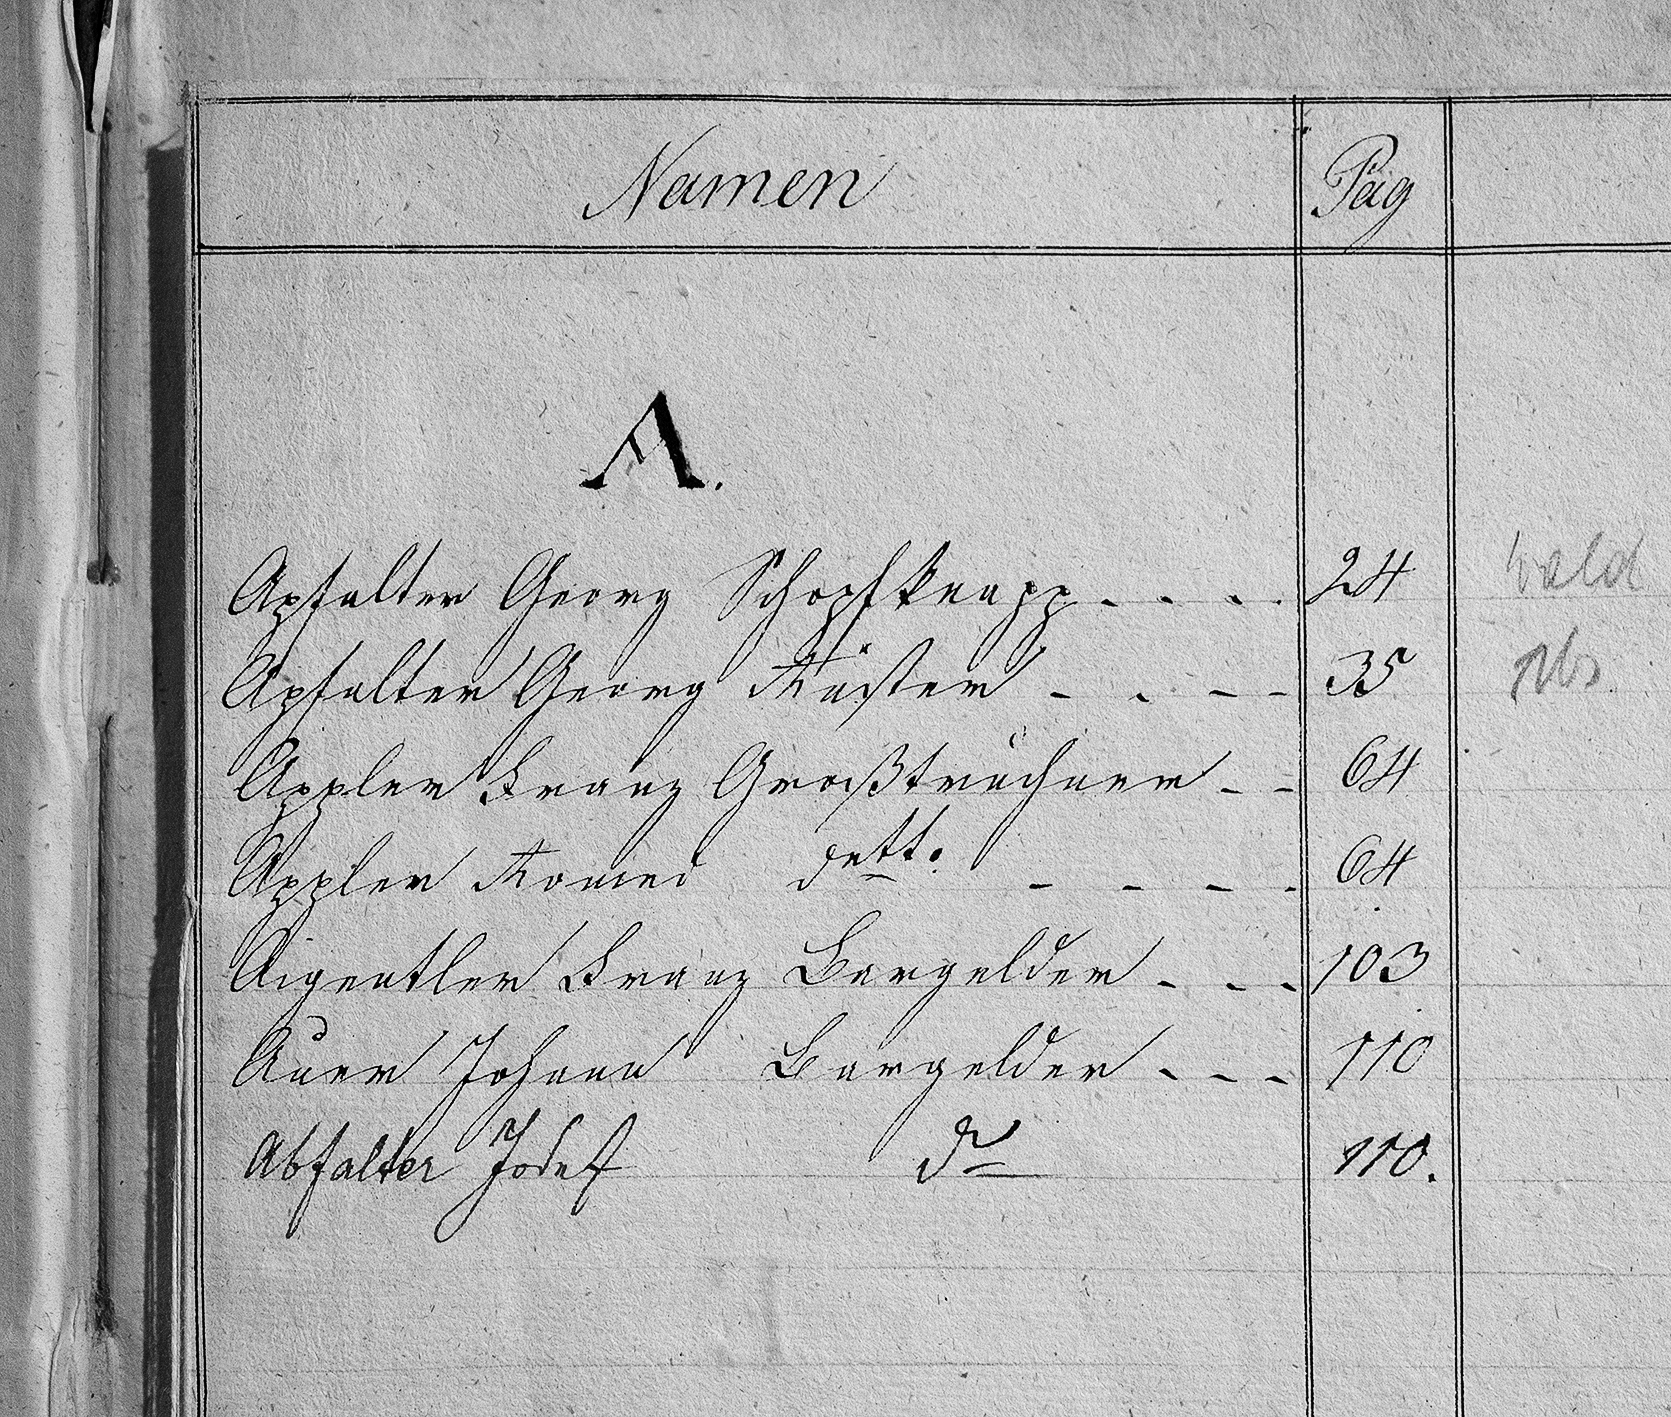 Namen Pag
A.
Apfalter Georg Schopfknapp - - - - 24 Wald
Apfalter Georg Küster - - - - 35
Appler Franz Großtrüchner - - 64
Appler Konrad dett: - - - - 64
Aigentler Franz Bargelder - - - 103
Auer Johann Bargelder - - - 110
Abfalter Josef do 110.